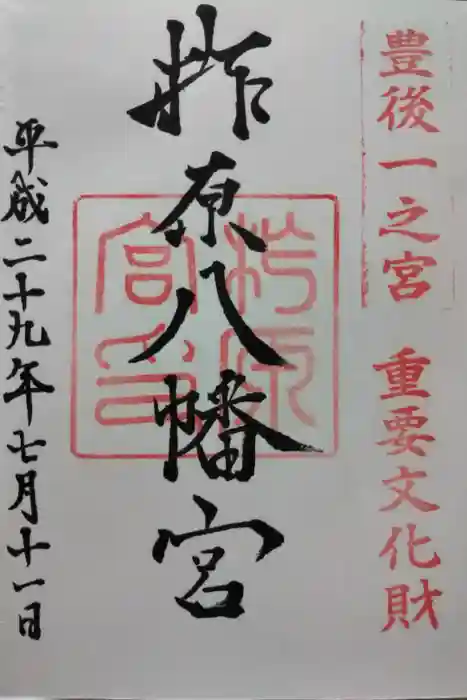 豊後一之宮 重要文化財
柞原八幡宮
柞原宮印
平成二十九年七月十一日